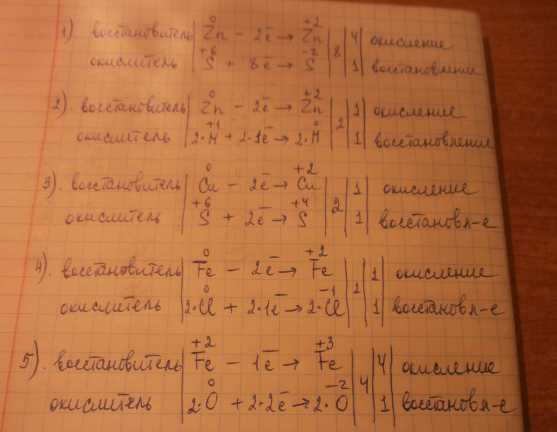 1) восстановитель | Zn⁰ – 2ē → Zn⁺² | 8 | 4 | окисление
окислитель | S⁺⁶ + 8ē → S⁻² | 1 | восстановление
2). восстановитель | Zn⁰ – 2ē → Zn⁺² | 2 | 1 | окисление
окислитель | 2·H⁺¹ + 2·1ē → 2·H⁰ | 1 | восстановление
3). восстановитель | Cu⁰ – 2ē → Cu⁺² | 2 | 1 | окисление
окислитель | S⁺⁶ + 2ē → S⁺⁴ | 1 | восстановл-е
4). восстановитель | Fe⁰ – 2ē → Fe⁺² | 2 | 1 | окисление
окислитель | 2·Cl⁰ + 2·1ē → 2·Cl⁻¹ | 1 | восстановл-е
5). восстановитель | Fe⁺² – 1ē → Fe⁺³ | 4 | 4 | окисление
окислитель | 2·O⁰ + 2·2ē → 2·O⁻² | 1 | восстановл-е